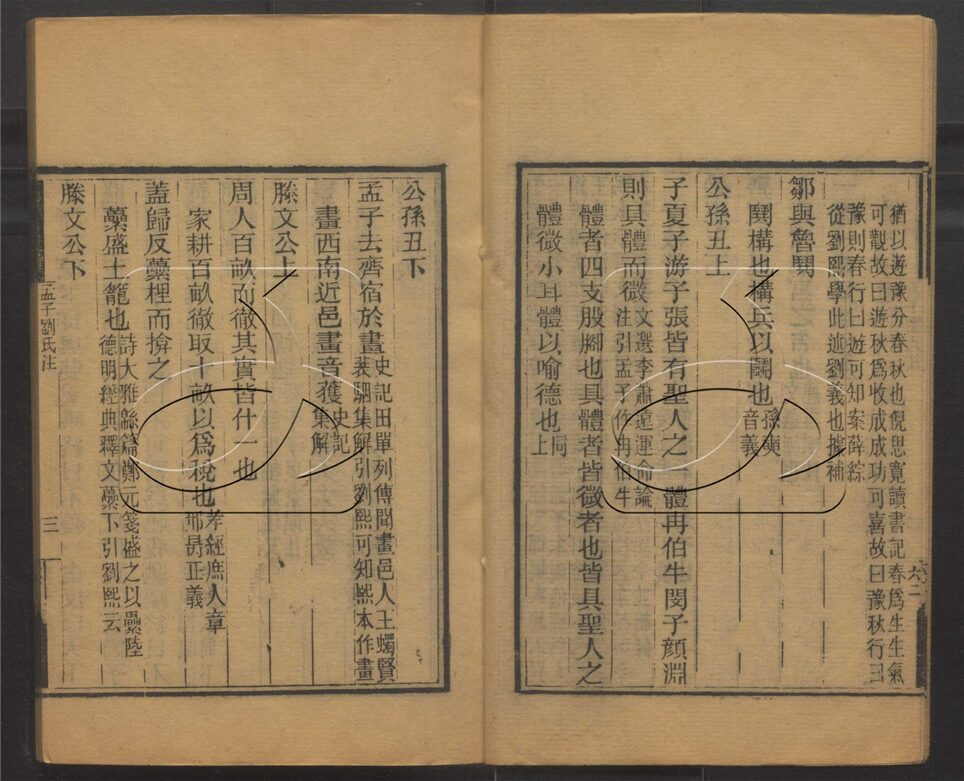 猶以遊豫分春秋也倪思寬讀書記春爲生生氣
可觀故曰遊秋爲收成成功可喜故曰豫秋行曰
豫則春行曰遊可知案薛綜
從劉熙學此道劉義也據補
鄒與魯鬨
鬨構也構兵以鬭也孫奭
音義
公孫丑上
子夏子游子張皆有聖人之一體冉伯牛閔子顔淵
則具體而微文選李肅遠運命論
注引孟子作冉伯牛
體者四支股腳也具體者皆微者也皆具聖人之
體微小耳體以喻德也同
上
公孫丑下
孟子去齊宿於晝史記田單列傳聞畫邑人王蠋賢
裴駰集解引劉熙可知熙本作畫
晝西南近邑畫音獲史記
集解
滕文公上
周人百畝而徹其實皆什一也
家耕百畝徹取十畝以爲稅也孝經庶人章
邢昺正義
蓋歸反虆梩而揜之
虆盛土籠也詩大雅緜篇鄭元箋盛之以虆陸
德明經典釋文虆下引劉熙云
滕文公下
孟子劉氏注
三